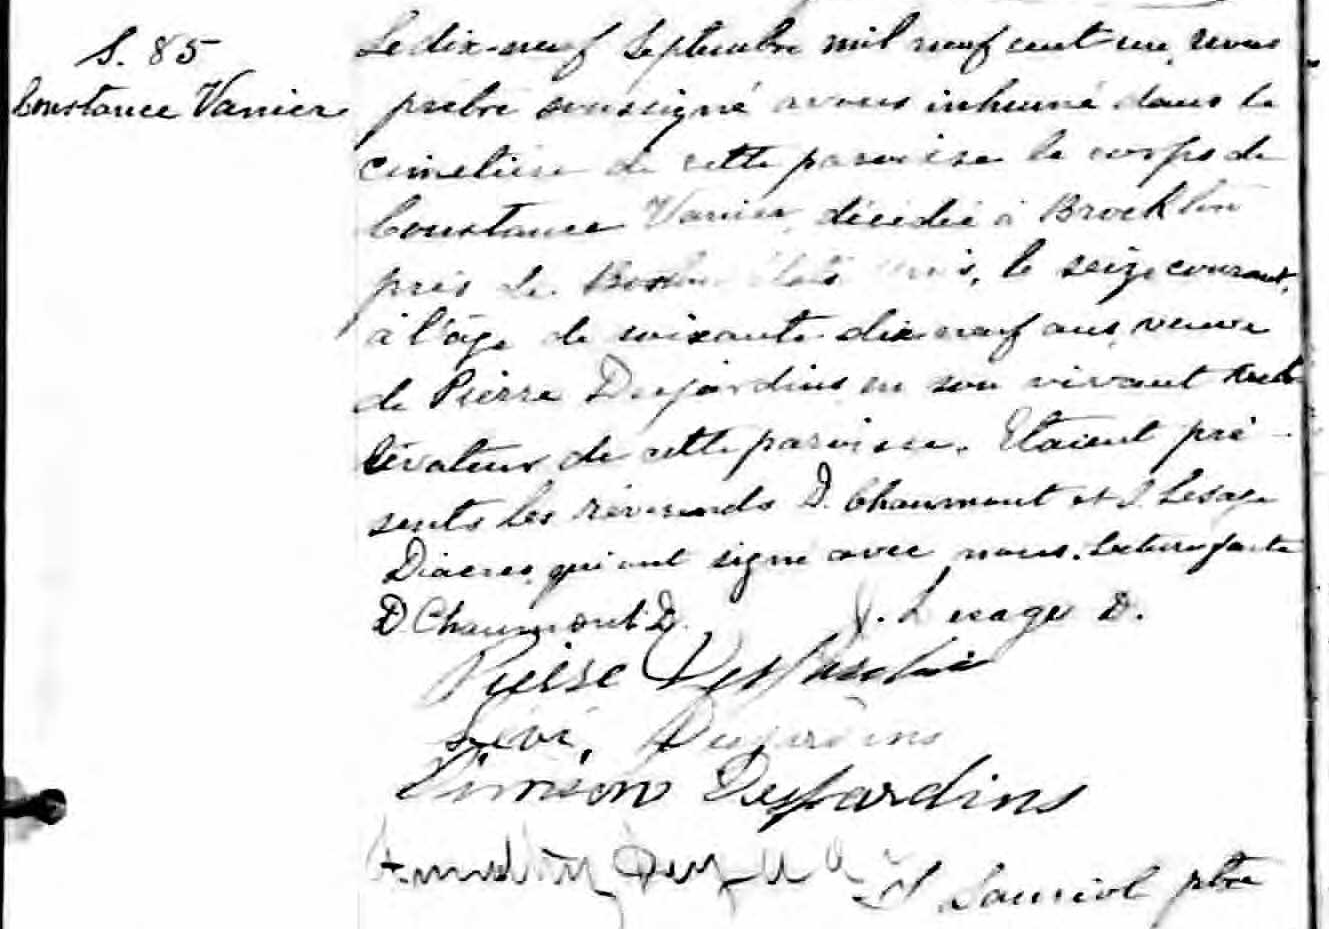 S. 85
Constance Vanier
Le dix-neuf Septembre mil neuf cent un, nous
prêtre soussigné avons inhumé dans le
cimetière de cette paroisse le corps de
Constance Vanier, décédée à Brocklin
près de Boston États Unis, le seize courant,
à l'âge de soixante-dix neuf ans, veuve
de Pierre Desjardins en son vivant cul
tivateur de cette paroisse. Etaient pré-
sents les révérends D. Chaumont et J. Lesage
Diacres qui ont signé avec nous. Lecture faite
D. Chaumont D. J. Lesage D.
Pierre Desjardins
Lévi, Desjardins
Siméon Desjardins
J Lauriol ptre